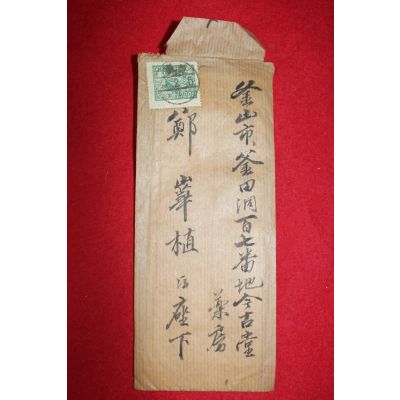 釜山市 釜田洞百七番地 今吉堂
薬房
鄭 崋植 氏 座下